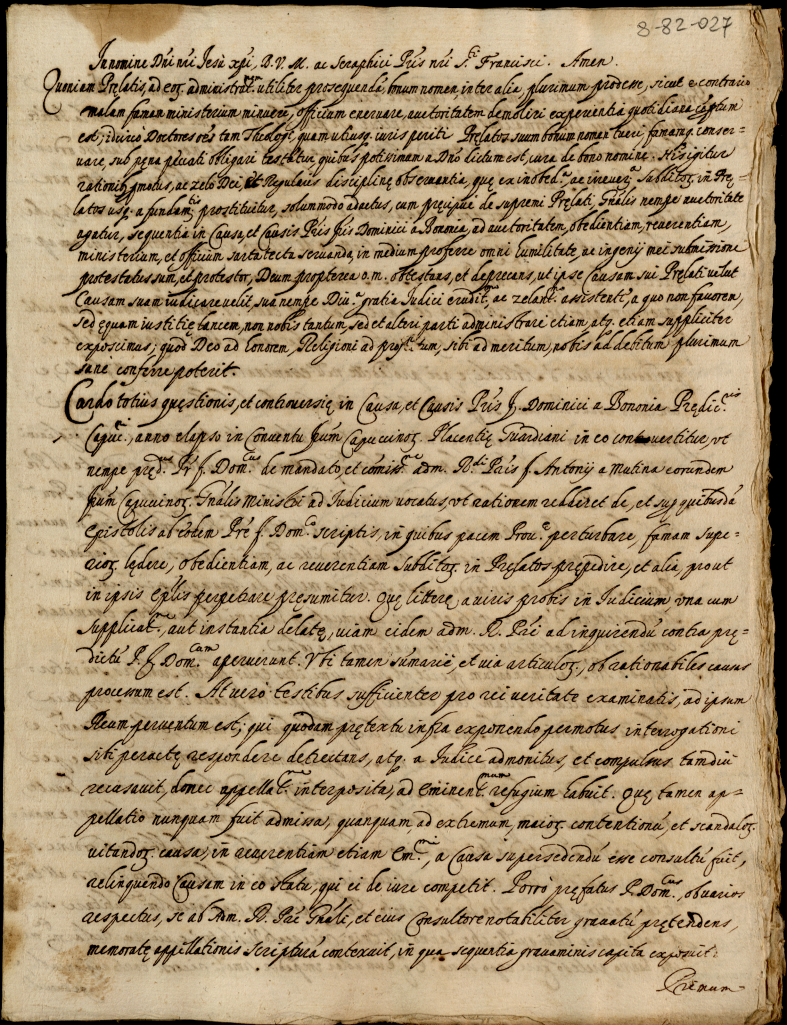 8-82-027
In nomine Dñi nri Jesu xpi, B. V. M. ac Seraphici Pris nri S.ti Francisci. Amen.
Quoniam Prelatis, ad eoꝝ administrat.nem utiliter prosequendã, bonum nomen inter alia, plurimum prodesse, sicut e contrario
malam famam ministerium minuere, officium enervare, auctoritatem demoliri experientia quotidiana cõptum
est; idcirco Doctores oẽs tam Theologi, quam utriusq. iuris periti Prelatos suum bonum nomen tueri famamq. conser-
vare, sub pęna peccati obligari testãtur, quibus potissimam a Dño dictum est, cura de bono nomine. His igitur
rationibꝰ motus, ac zelo Dei, et Regularis disciplinę observantia, quę ex inobed.a ac irrever.a Subditoꝝ in Prę-
latos usq. a fundam.tis prostituitur, solummodo adactus, cum pręcipue de supremi Pręlati, Gñalis nempe auctoritate
agatur, sequentia in Causa, et Causis Pris Fris Dominici a Bononia, ad auctoritatem, obedientiam, reverentiam,
ministerium, et officium sarta tecta servanda, in medium proferre omni humilitate, ac ingenij mei submissione
protestatus sum, et protestor, Deum propterea o. m. obtestans, et deprecans, ut ipse Causam sui Prelati velut
Causam suam iudicare velit, sua nempe Div.a gratia Iudici erudit.mo ac zelant.mo assistenti, a quo non favorem,
sed ęquam iustitię lancem, non nobis tantum, sed et alteri parti administrari etiam, atq. etiam suppliciter
exposcimus; quod Deo ad honorem, Religioni ad profectum, sibi ad meritum, nobis ad debitum plurimum
sane conferre poterit.
Cardo totius quęstionis, et controversię in Causa, et Causis Pris F. Dominici a Bononia Prędic.ris
Capuc.i, anno elapso in Conventu frum Capuccinoꝝ Placentię Guardiani in eo controvertitur, ut
nempe pręd.us Pr f. Dom.cus de mandato, et comiss.ne adm. R.di Pris f. Antonij a Mutina eorundem
frum Capucinoꝝ Gnãlis Ministri ad Iudicium vocatus, ut rationem redderet de, et sup quibusdã
Epistolis ab eodem Pre f. Dom.co scriptis, in quibus pacem Prov.ę perturbare, famam Supe-
rioꝝ lędere, obedientiam, ac reverentiam Subditoꝝ in Pręlatos prępedire, et alia, prout
in ipsis Eplis perpetrare pręsumitur. Quę litterę a viris probis in Iudicium una cum
supplicat.ne, aut instantia delatę, viam eidem adm. R. Pri ad inquirendũ contra prę-
dictũ P. f. Dom.cum aperuerunt. Ubi tamen sũmarie, et via articuloꝝ, ob rationabiles causas
processum est. At vero testibus sufficienter pro rei veritate examinatis, ad ipsum
Reum perventum est; qui quodam prętextu infra exponendo permotus interrogationi
sibi peractę respondere detrectans, atq. a Iudice admonitus, et compulsus tamdiu
recusavit, donec appellat.ne interposita, ad Eminent.mum refugium habuit. Quę tamen ap-
pellatio nunquam fuit admissa, quanquam ad extremum, maioꝝ contentionũ, et scandaloꝝ
vitandoꝝ causa, in reverentiam etiam Em.mi, a Causa supersedendũ esse consultũ fuit,
relinquendo Causam in eo statu, qui ei de iure competit. Porrò pręfatus P. Dom.cus, ob varios
respectus, se ab Adm. R. Pre Gñali, et eius Consultore notabiliter gravatũ prętendens,
memoratę appellationis scripturã contexuit, in qua sequentia gravaminis capita exposuit:
Primum-